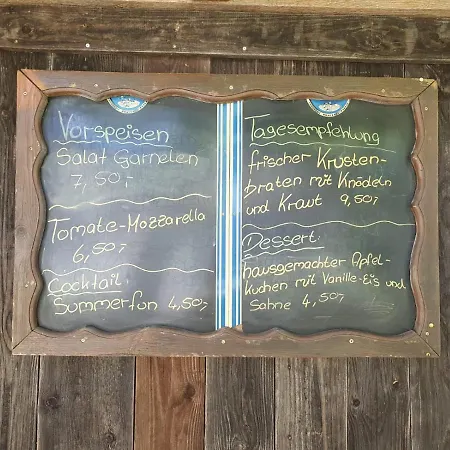 Vorspeisen
Salat Garnelen
7,50,-
Tomate-Mozzarella
6,50,-
Cocktail:
Sommerfun 4,50,-
Tagesempfehlung
frischer Krusten-
braten mit Knödeln
und Kraut 9,50,-
Dessert:
hausgemachter Apfel-
kuchen mit Vanille-Eis und
Sahne 4,50,-